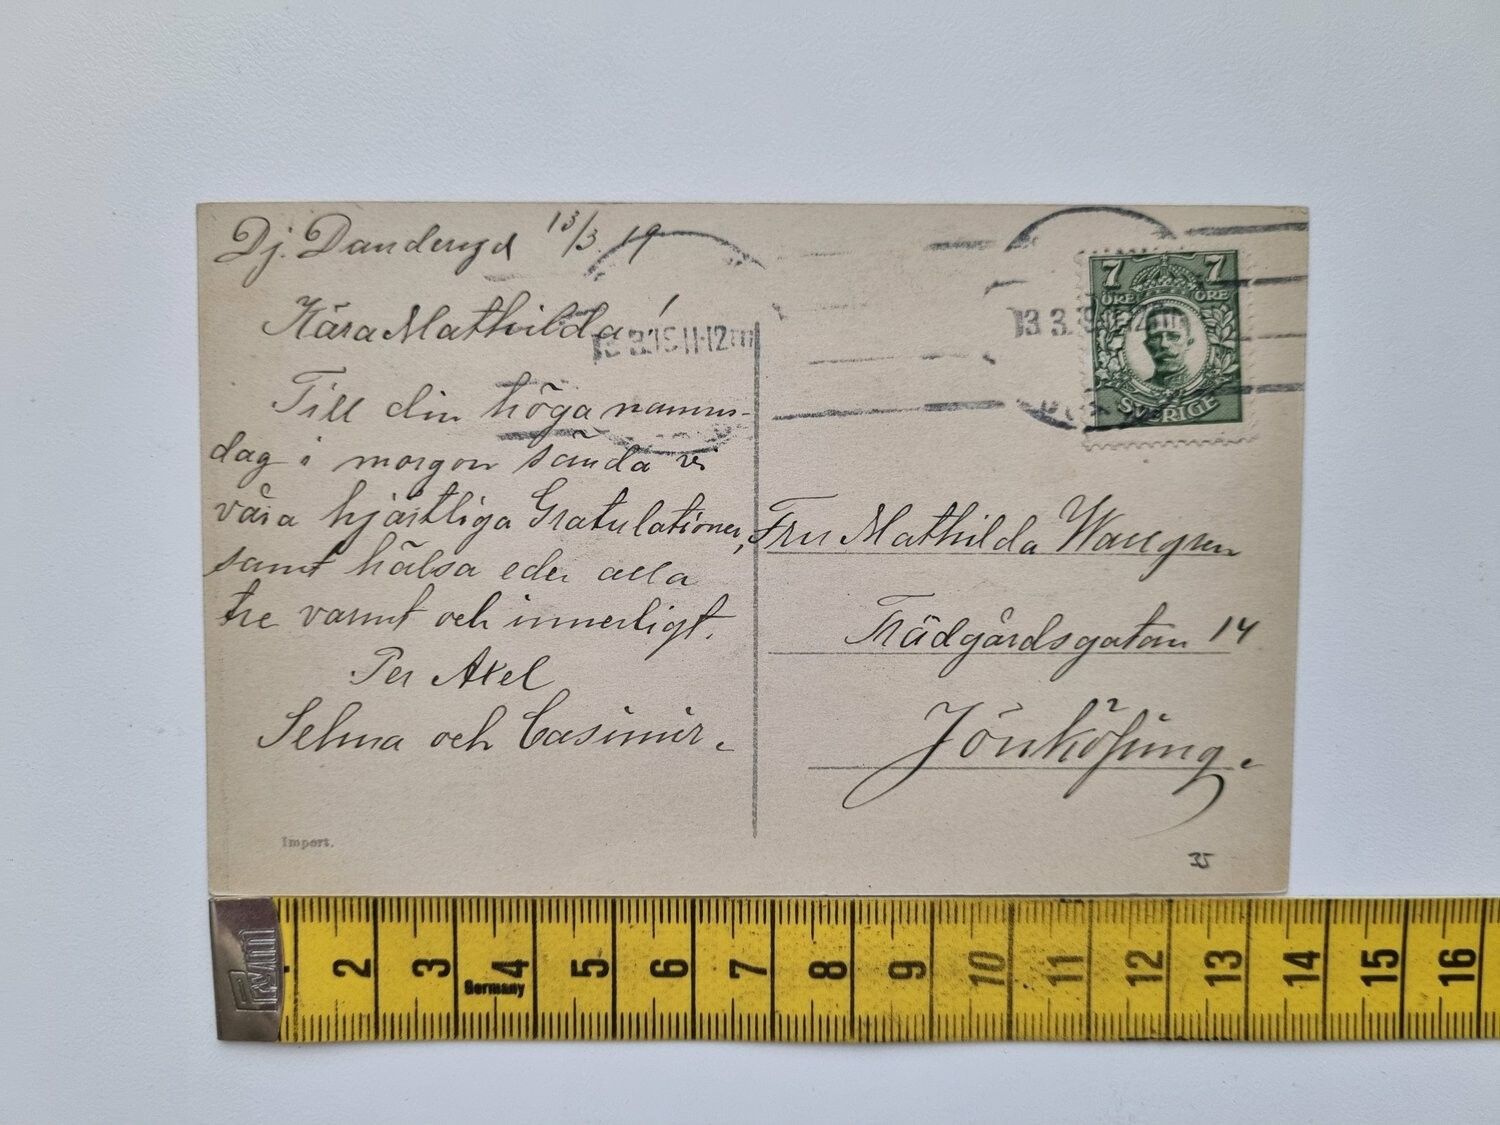 Dj. Danderyd 13/3. 19
Kära Mathilda!
Till din höga namns-
dag i morgon sända vi
våra hjärtliga Gratulationer,
samt hälsa eder alla
tre varmt och innerligt.
Per Axel
Selma och Casimir.
Import.
11-12
13 3.
7 7
ÖRE ÖRE
SVERIGE
Fru Mathilda
Trädgårdsgatan 14
Jönköping.
35
Prym
2 3 4 5 6 7 8 9 10 11 12 13 14 15 16
Germany